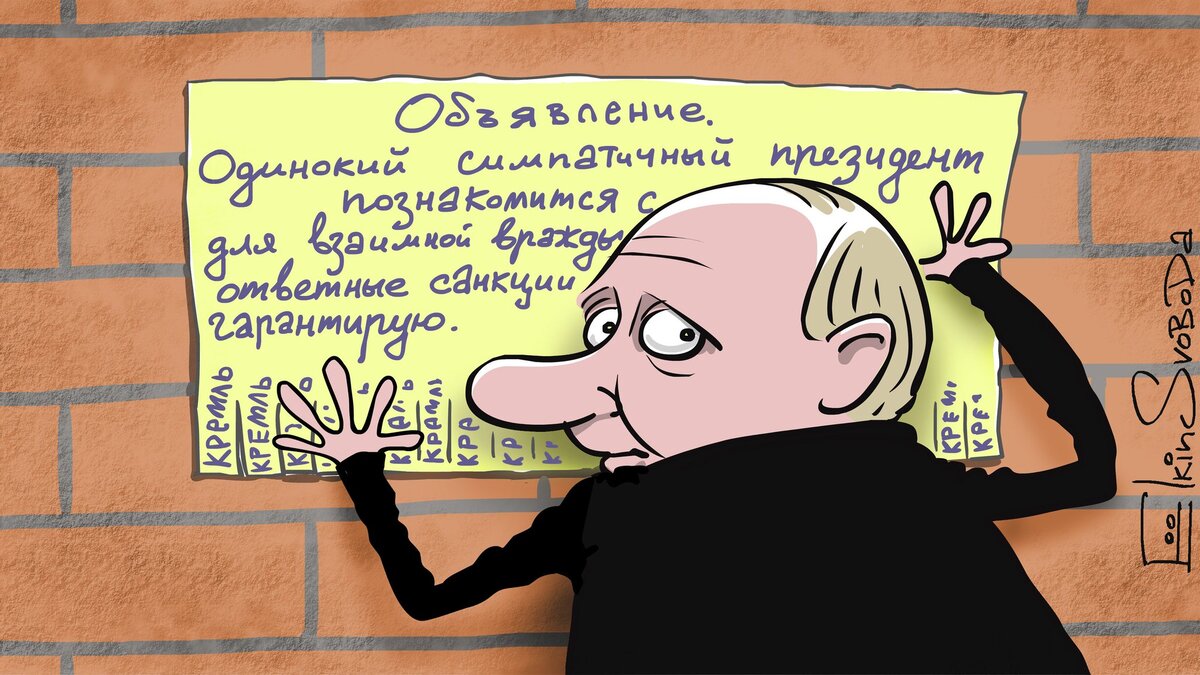 Объявление.
Одинокий симпатичный президент
познакомится с
для взаимной вражды
ответные санкции
гарантирую.
КРЕМЛЬ
КРЕМЛЬ
КРЕМЛ
КРЕ
КР
КР
КРЕМ
КРЕ
Ёlkinc SvoBoDa